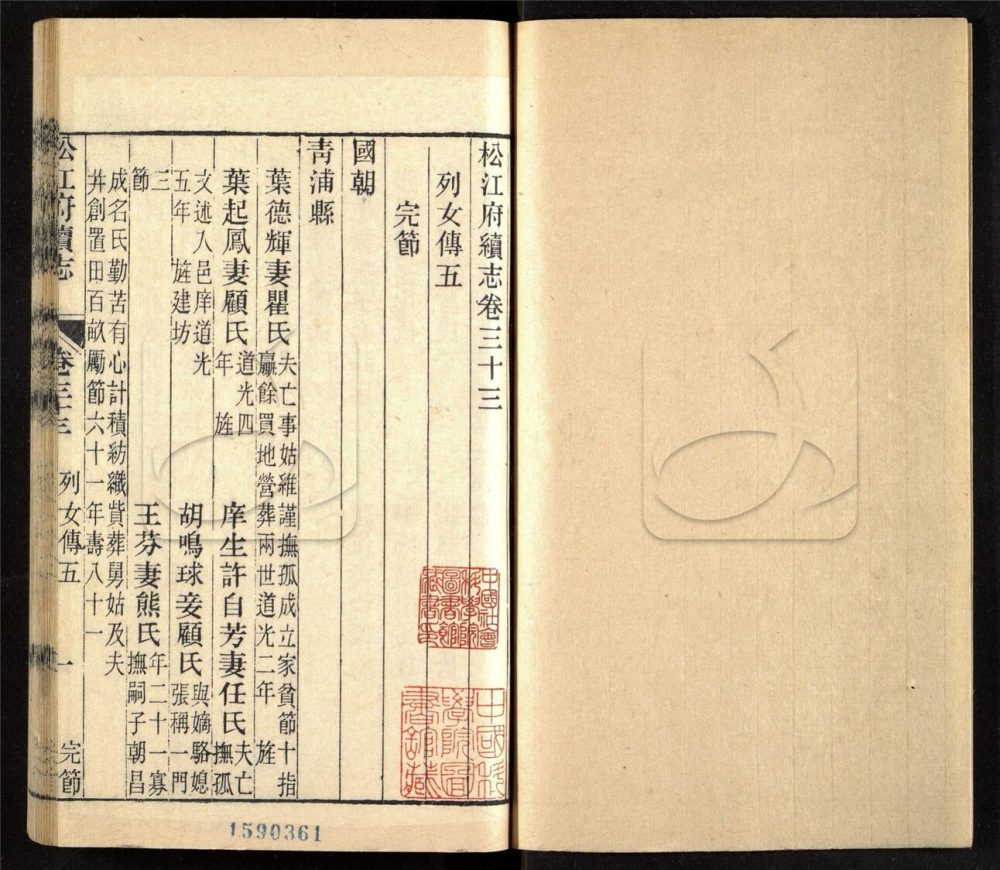 松江府續志卷三十三
列女傳五
完節
國朝
青浦縣
葉德輝妻瞿氏
夫亡事姑維謹撫孤成立家貧節十指
贏餘買地營葬兩世道光二年 旌
葉起鳳妻顧氏
道光四
年 旌
庠生許自芳妻任氏
夫亡
撫孤
文述入邑庠道光
五年 旌建坊
胡鳴球妾顧氏
與嫡駱媳
張稱一門
三
節
王芬妻熊氏
年二十一寡
撫嗣子朝昌
成名氏勤苦有心計積紡織貲葬舅姑及夫
并創置田百畝勵節六十一年壽八十一
松江府續志 卷三十三 列女傳五 一 完節
中國社會
科學院
圖書館
藏書印
1590361